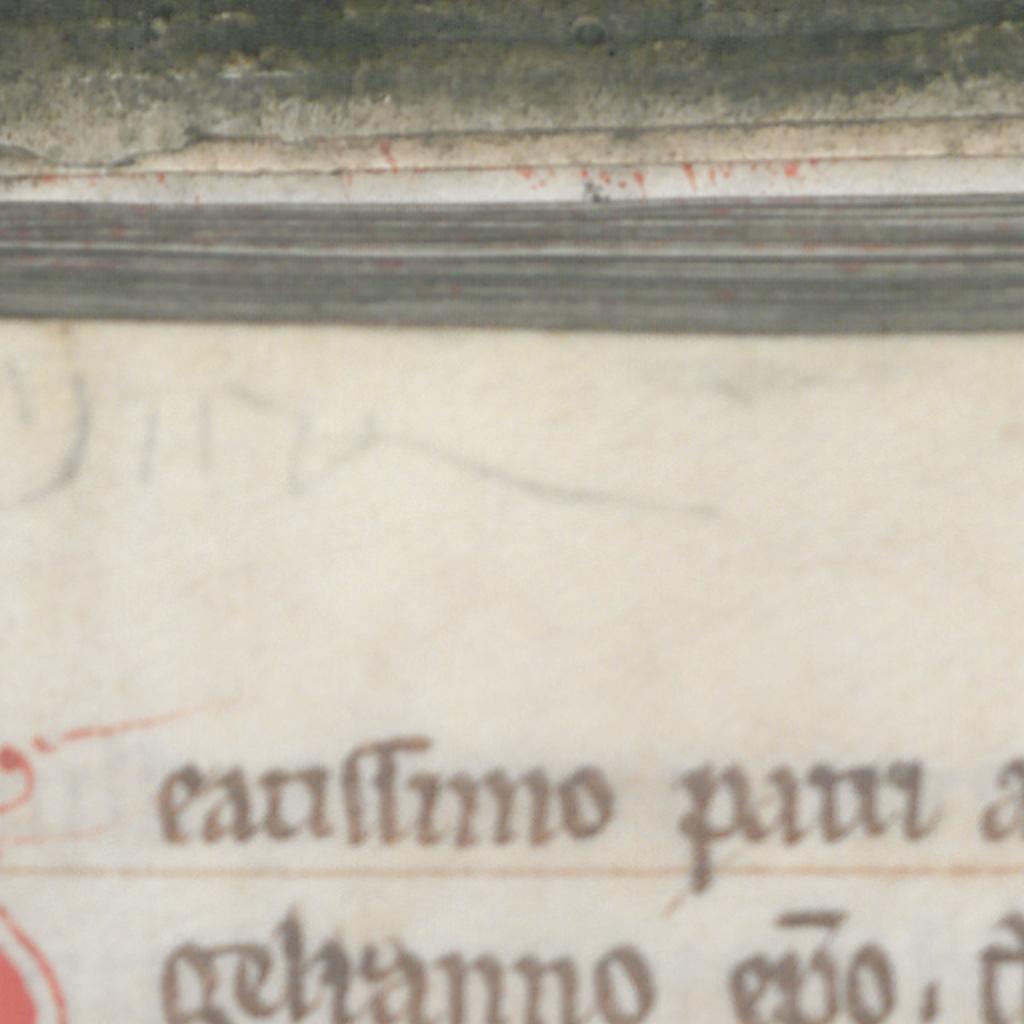 eatissimo patri a
gelranno ep̄o.